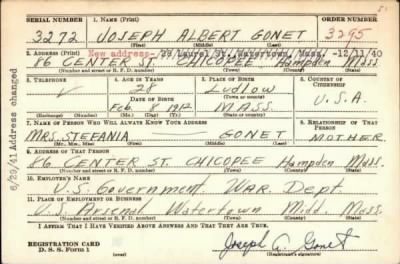 SERIAL NUMBER 1. NAME (Print) ORDER NUMBER
3272 JOSEPH ALBERT GONET 3295
(First) (Middle) (Last)
New address- 29 Laurel St, Watertown, Mass. -12/11/40
2. ADDRESS (Print)
86 CENTER ST. CHICOPEE Hampden Mass
(Number and street or R. F. D. number) (Town) (County) (State)
3. TELEPHONE 4. AGE IN YEARS 5. PLACE OF BIRTH 6. COUNTRY OF CITIZENSHIP
28 Ludlow
DATE OF BIRTH (Town or county)
Feb 8 1912 MASS. U.S.A.
(Exchange) (Number) (Mo.) (Day) (Yr.) (State or country)
7. NAME OF PERSON WHO WILL ALWAYS KNOW YOUR ADDRESS 8. RELATIONSHIP OF THAT PERSON
MRS. STEFANIA GONET MOTHER
(Mr., Mrs., Miss) (First) (Middle) (Last)
9. ADDRESS OF THAT PERSON
86 CENTER ST. CHICOPEE Hampden Mass.
(Number and street or R. F. D. number) (Town) (County) (State)
10. EMPLOYER'S NAME
U.S. Government WAR Dept
11. PLACE OF EMPLOYMENT OR BUSINESS
U.S Arsenal Watertown Midd. Mass.
(Number and street or R. F. D. number) (Town) (County) (State)
I AFFIRM THAT I HAVE VERIFIED ABOVE ANSWERS AND THAT THEY ARE TRUE.
REGISTRATION CARD
D. S. S. Form 1
Joseph A. Gonet
(Registrant's signature)
6/29/41 Address changed